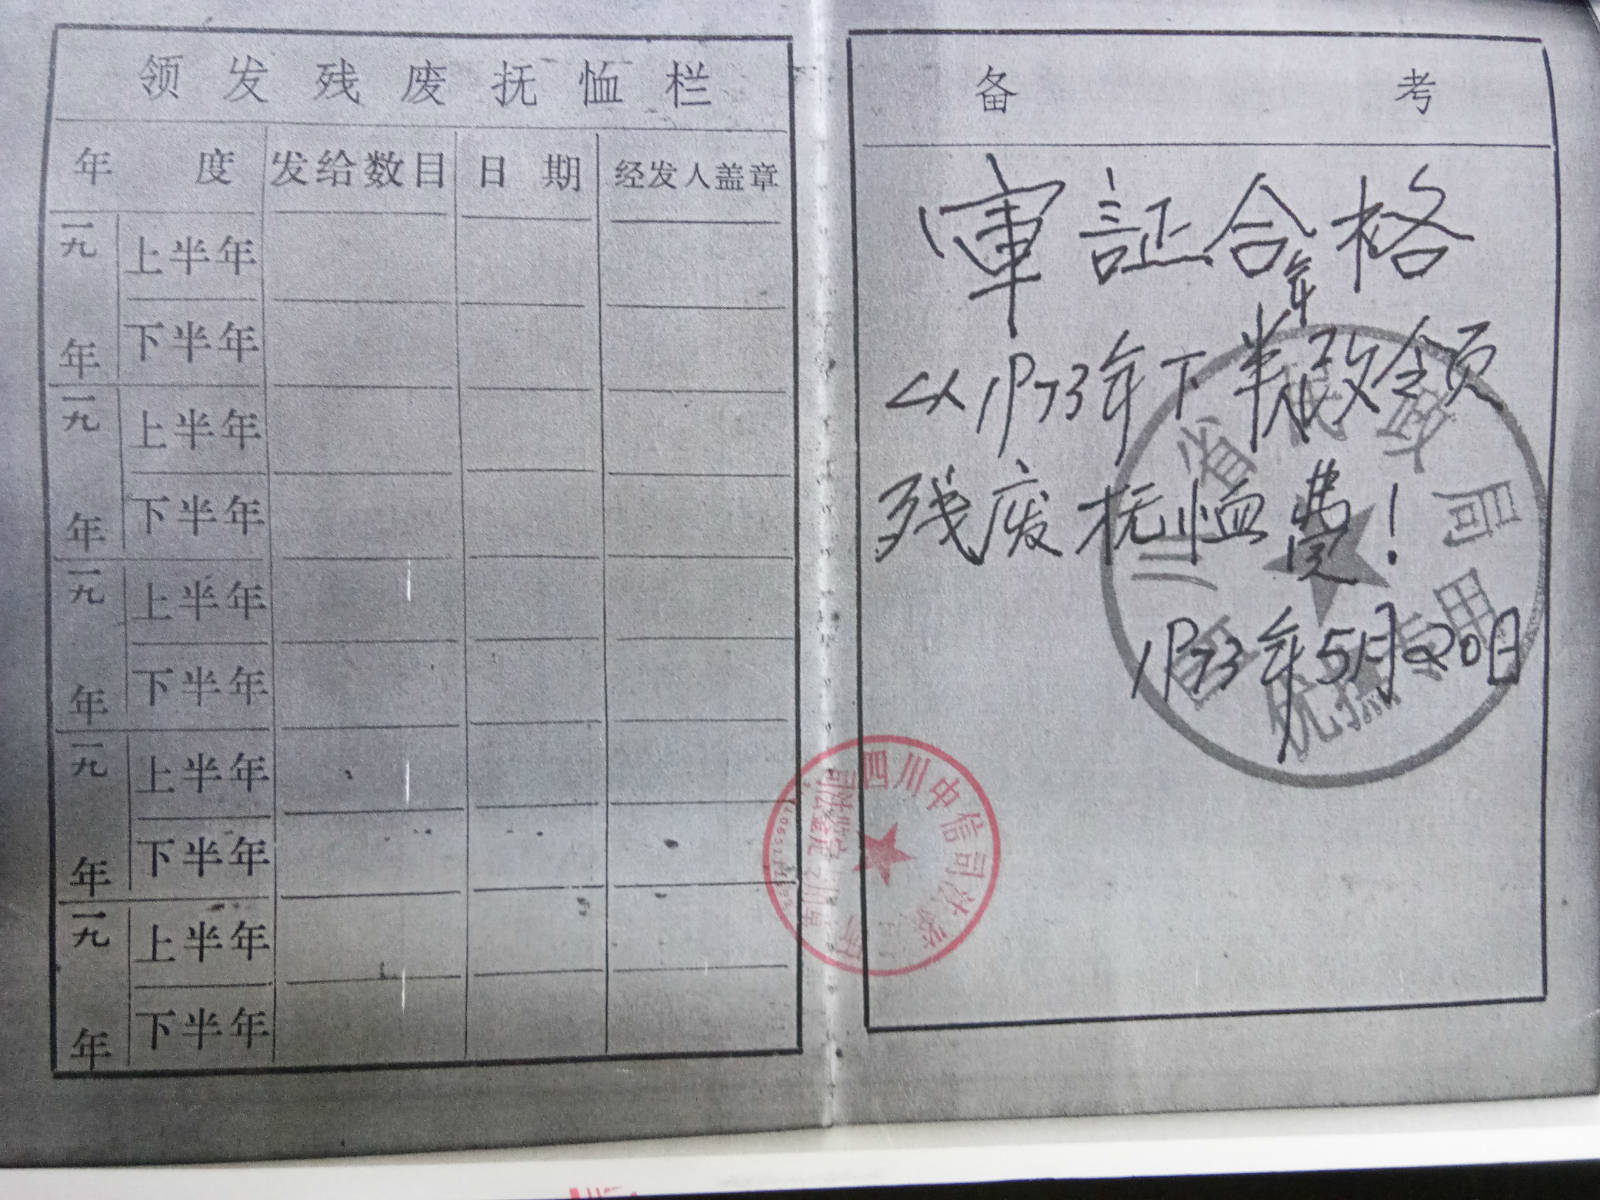 领发残废抚恤栏
年度 发给数目 日期 经发人盖章
一九 年 上半年
下半年
一九 年 上半年
下半年
一九 年 上半年
下半年
一九 年 上半年
下半年
一九 年 上半年
下半年
备考
审証合格
从1973年下半年改领
残废抚恤费！
1973年5月20日
省民政局
优抚专用
四川中信司法鉴
司法鉴定